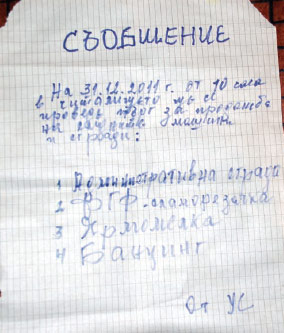 СЪОБЩЕНИЕ
На 31.12.2011 г. от 10 часа
в читалището ще се
проведе търг за продажба
на машини
и сгради:
1 Административна сграда
2 ФГФ-сламорезачка
3 Хромелка
4 Банциг
От УС